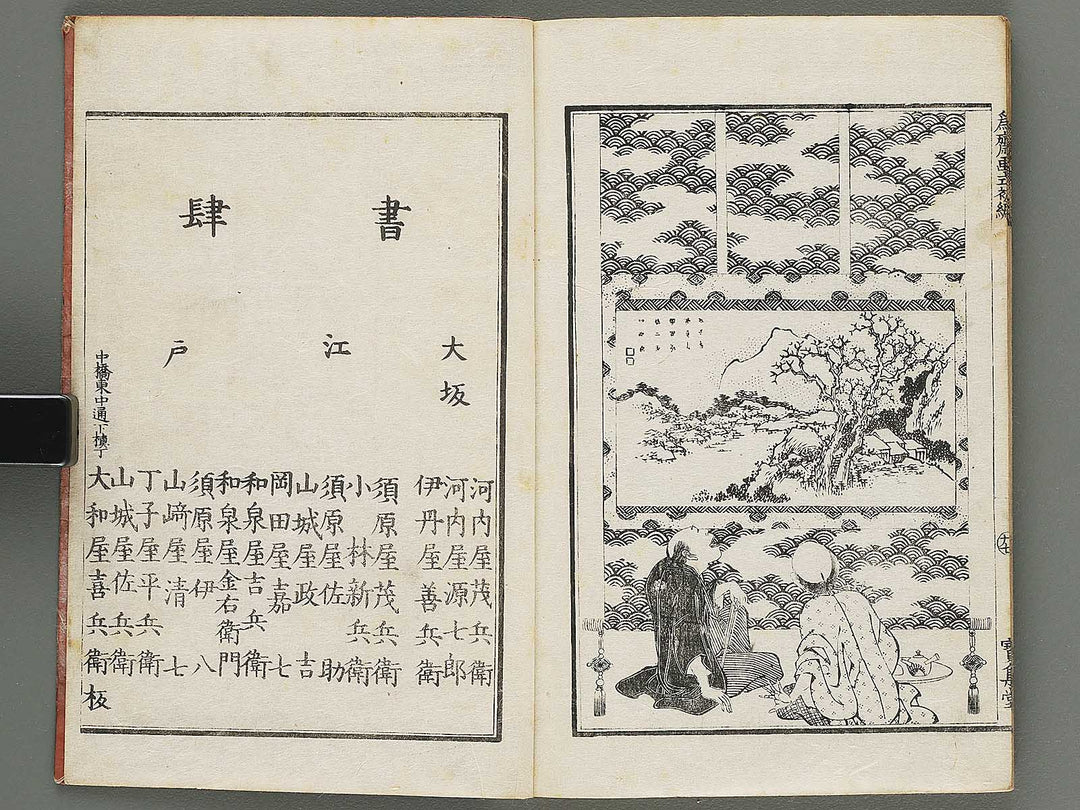 為齋画式初編
九
寶集堂
書肆
大坂
河内屋茂兵衛
河内屋源七郎
伊丹屋善兵衛
江戸
須原屋茂兵衛
小林新兵衛
須原屋佐助
山城屋政吉
岡田屋嘉七
和泉屋吉兵衛
和泉屋金右衛門
須原屋伊八
山﨑屋清七
丁子屋平兵衛
山城屋佐兵衛
中橋東中通
大和屋喜兵衛板